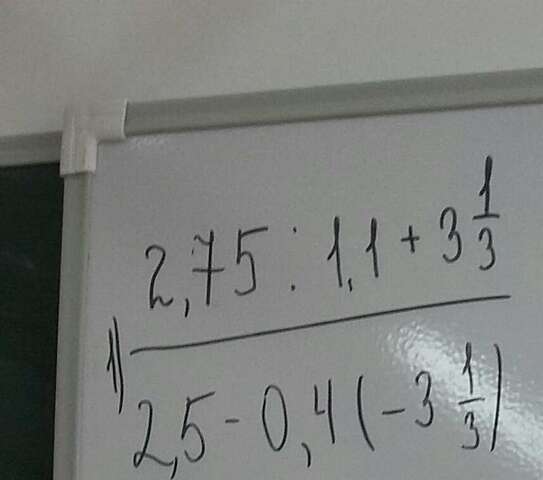 1) 2,75 : 1,1 + 3 1/3
2,5 - 0,4 (- 3 1/3)